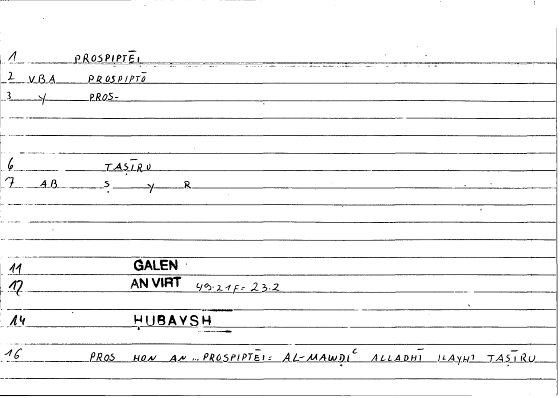 1 PROSPIPTEĪ
2 V.B.A PROSPIPTŌ
3 Y PROS-
6 TAṢĪRU
7 AB Ṣ Y R
11 GALEN
12 AN VIRT 49.21F= 23.2
14 ḤUBAYSH
16 PROS HON AN ... PROSPIPTĒI= AL-MAWḌIᶜ ALLADHĪ ILAYHI TAṢĪRU